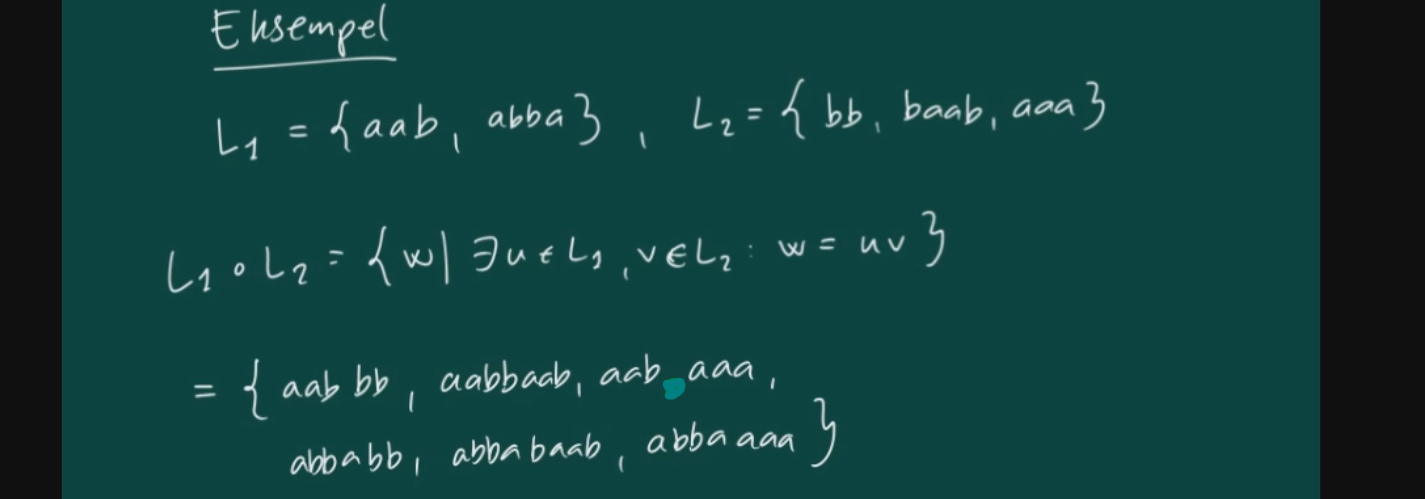 Eksempel
L₁ = {aab, abba}, L₂ = {bb, baab, aaa}
L₁ ∘ L₂ = {w| ∃u ∈ L₁, v ∈ L₂ : w = uv}
= {aab bb, aabbaab, aab aaa,
abbabb, abba baab, abba aaa}